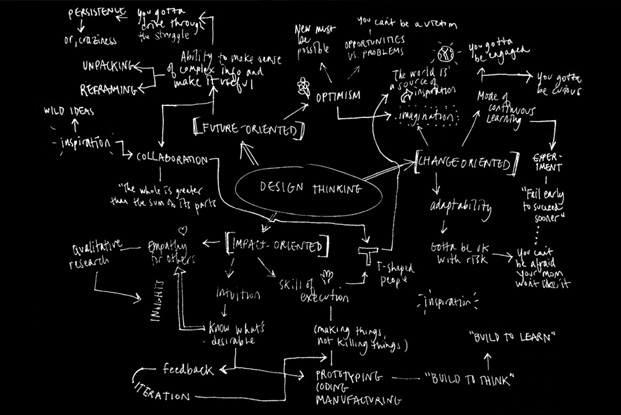 PERSISTENCE
or, craziness
you gotta
drive through
the struggle
UNPACKING
REFRAMING
Ability to make sense
of complex info and
make it useful
New must
be
possible
you can't be a victim
OPPORTUNITIES
VS. PROBLEMS
OPTIMISM
The world is
a source of
inspiration
imagination
you gotta
be engaged
you gotta
be curious
Mode of
continuous
learning
WILD IDEAS
inspiration
COLLABORATION
"The whole is greater
than the sum of its parts
[FUTURE-ORIENTED]
DESIGN THINKING
[CHANGE ORIENTED]
EXPER-
IMENT
"Fail early
to succeed
sooner"
adaptability
Gotta be ok
with risk
You can't
be afraid
your mom
won't like it
[IMPACT-ORIENTED]
Qualitative
research
Empathy
for others
INSIGHTS
intuition
skill of
execution
T-shaped
people
inspiration
know what's
desirable
(making things,
not killing things)
feedback
ITERATION
PROTOTYPING
CODING
MANUFACTURING
"BUILD TO THINK"
"BUILD TO LEARN"